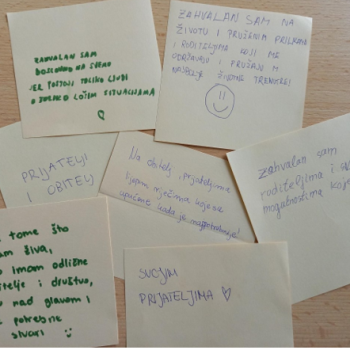 ZAHVALAN SAM
DOSLOVNO NA SVEMU
JER POSTOJI TOLIKO LJUDI
U LOŠIM SITUACIJAMA
ZAHVALAN SAM NA
ŽIVOTU I PRUŽENIM PRILIKAMA
I RODITELJIMA KOJI ME
ODRŽAVAJU I PRUŽAJU MI
NAJBOLJE ŽIVOTNE TRENUTKE!
PRIJATELJI
I OBITELJ
Na obitelj, prijateljima
lijepim riječima koje me
upućene kada je najpotrebnije!
zahvalan sam
roditeljima i
mogućnostima koje
tome što
sam živa,
imam odlične
telje i društvo,
nad glavom i
potrebne
stvari
SVOJIM
PRIJATELJIMA